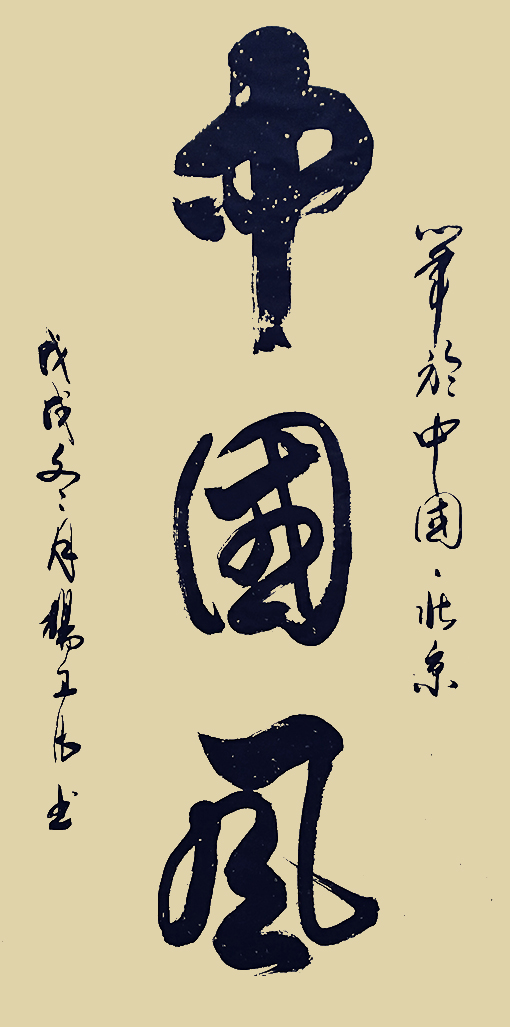 笔於中国北京
中國風
戊戌冬月楊玉书